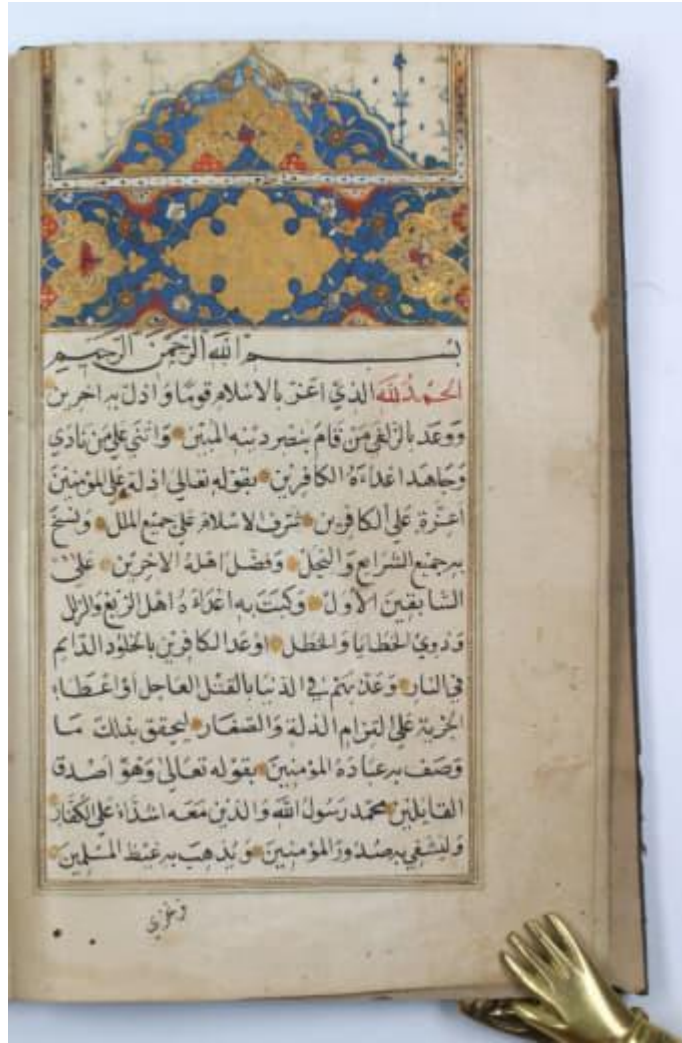 بسم الله الرحمن الرحيم
الحمد لله الذي اعز بالاسلام قوما واذل به اخرين
ووعد بالزلفى من قام بنصر دينه المبين واثنى على من نادي
وجاهد اعداءه الكافرين بقوله تعالى اذلة على المؤمنين
اعزة على الكافرين شرف الاسلام على جميع الملل ونسخ
به جميع الشرايع والنحل وفضل اهله الاخرين على
السابقين الاول وكبت به اعداءه اهل الزيغ والزلل
وذوي الخطايا والخطل اوعد الكافرين بالخلود الدايم
في النار وعذبهم في الدنيا بالقتل العاجل او اعطاء
الجزية على التزام الذلة والصغار ليحقق بذلك ما
وصف به عباده المؤمنين بقوله تعالى وهو اصدق
القايلين محمد رسول الله والذين معه اشداء على الكفار
وليشفي به صدور المؤمنين ويذهب به غيظ المسلمين